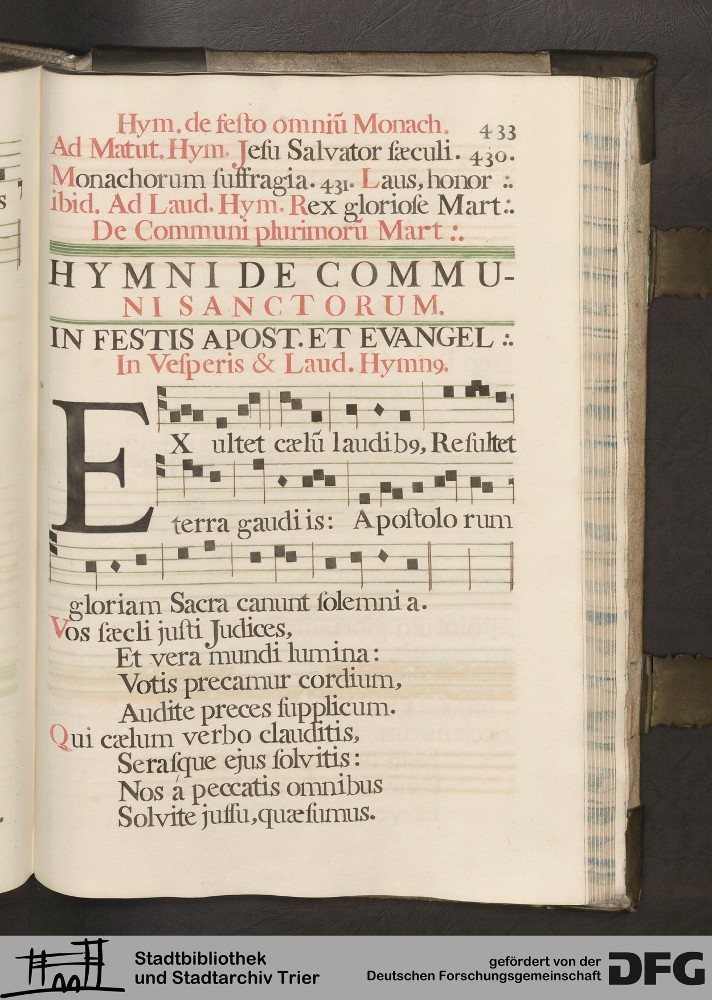 Hym. de festo omniū Monach.
433
Ad Matut. Hym. Jesu Salvator sæculi. 430.
Monachorum suffragia. 431. Laus, honor ∴
ibid. Ad Laud. Hym. Rex gloriose Mart∴
De Communi plurimorū Mart ∴
HYMNI DE COMMU-
NI SANCTORUM.
IN FESTIS APOST. ET EVANGEL ∴
In Vesperis & Laud. Hymn9.
EX ultet cælū laudib9, Resultet
terra gaudiis: Apostolo rum
gloriam Sacra canunt solemni a.
Vos sæcli justi Judices,
Et vera mundi lumina:
Votis precamur cordium,
Audite preces supplicum.
Qui cælum verbo clauditis,
Serasque ejus solvitis:
Nos á peccatis omnibus
Solvite jussu, quæsumus.
Stadtbibliothek
und Stadtarchiv Trier
gefördert von der
Deutschen Forschungsgemeinschaft
DFG